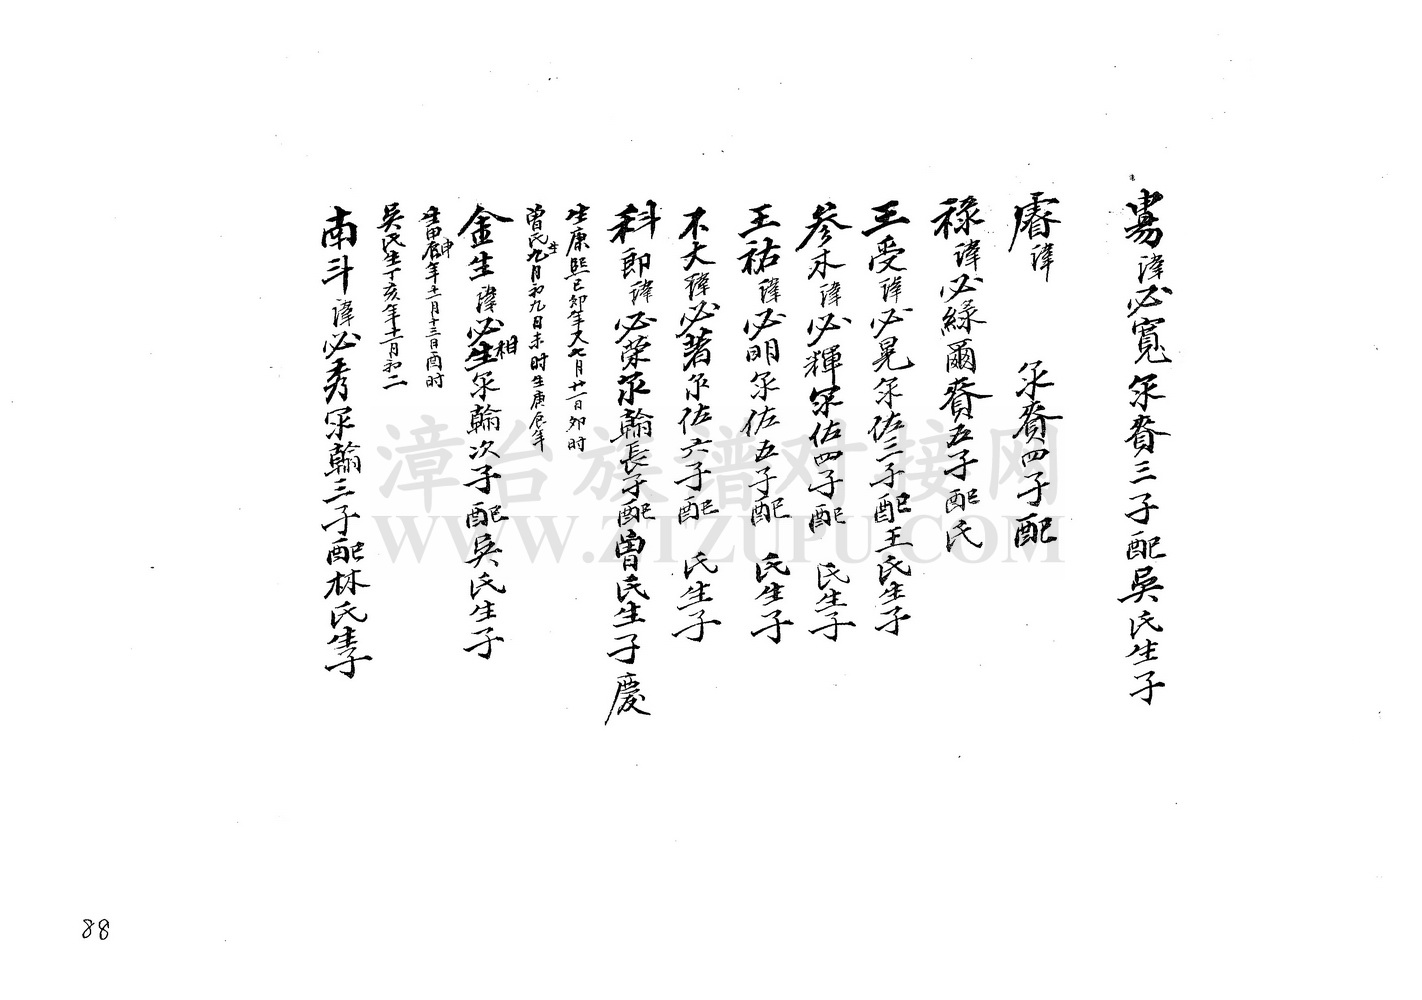 諱必寬 爾賚三子配吳氏生子
諱 爾賚四子配
祿諱必綠爾賚五子配氏
王受諱必晃爾佐三子配王氏生子
參木諱必輝爾佐四子配 氏生子
王祐諱必明爾佐五子配 氏生子
不大諱必著爾佐六子配 氏生子
科郎諱必榮爾翰長子配曾氏生子慶
生康熙己卯年又七月廿一日卯时
曾氏生九月初九日未时生庚辰年
金生諱必生相爾翰次子配吳氏生子
生甲申年十一月十三日酉时
吳氏生丁亥年十一月初二
南斗諱必秀爾翰三子配林氏生子
漳台族谱对接网
WWW.ZTZUPU.COM
88